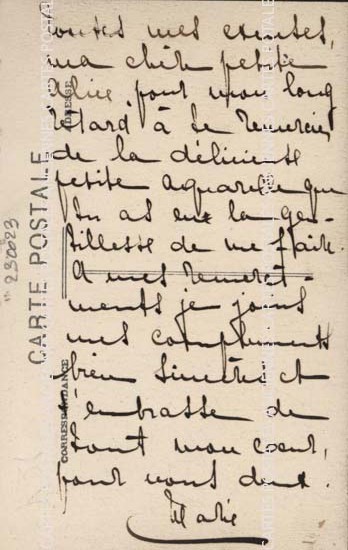 toutes mes excuses,
ma chère petite
Alice, pour mon long
retard à te remercier
de la délicieuse
petite aquarelle que
tu as eue la gen-
tillesse de me faire.
A mes remercî-
ments je joins
mes compliments
bien sincères et
t'embrasse de
tout mon cœur,
pour vous deux.
Marie
CARTE POSTALE
ADRESSE
CORRESPONDANCE
230023